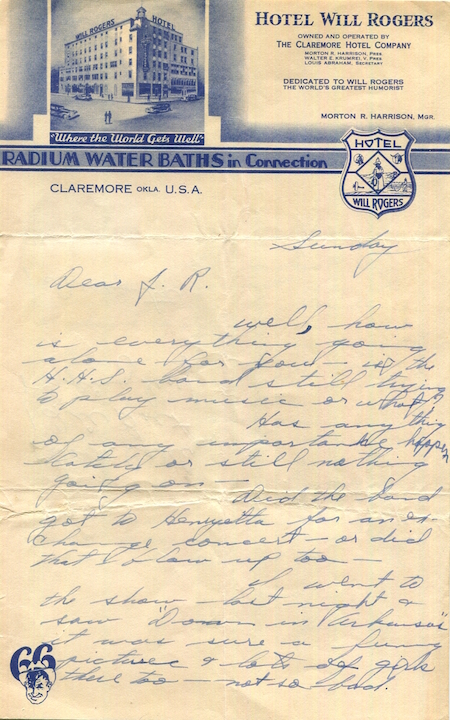 WILL ROGERS HOTEL
HOTEL WILL ROGERS
OWNED AND OPERATED BY
THE CLAREMORE HOTEL COMPANY
MORTON R. HARRISON, PRES
WALTER E. KRUMREI V. PRES
LOUIS ABRAHAM, SECRETARY
DEDICATED TO WILL ROGERS
THE WORLD'S GREATEST HUMORIST
MORTON R. HARRISON, MGR.
"Where the World Gets Well"
RADIUM WATER BATHS in Connection
HOTEL
WILL ROGERS
CLAREMORE OKLA. U.S.A.
Sunday
Dear J. R.
Well, how
is everything going
alone for you - is the
H.H.S. band still trying
to play music or what?
Has anything
of any importance happen
lately or still nothing
going on -
Did the band
got to Henryetta for an ex-
change concert - or did
that blow up too -
I went to
the show last night &
saw "Down in Arkansas"
it was sure a funny
picture & lots of girls
there too - not so bad.
66